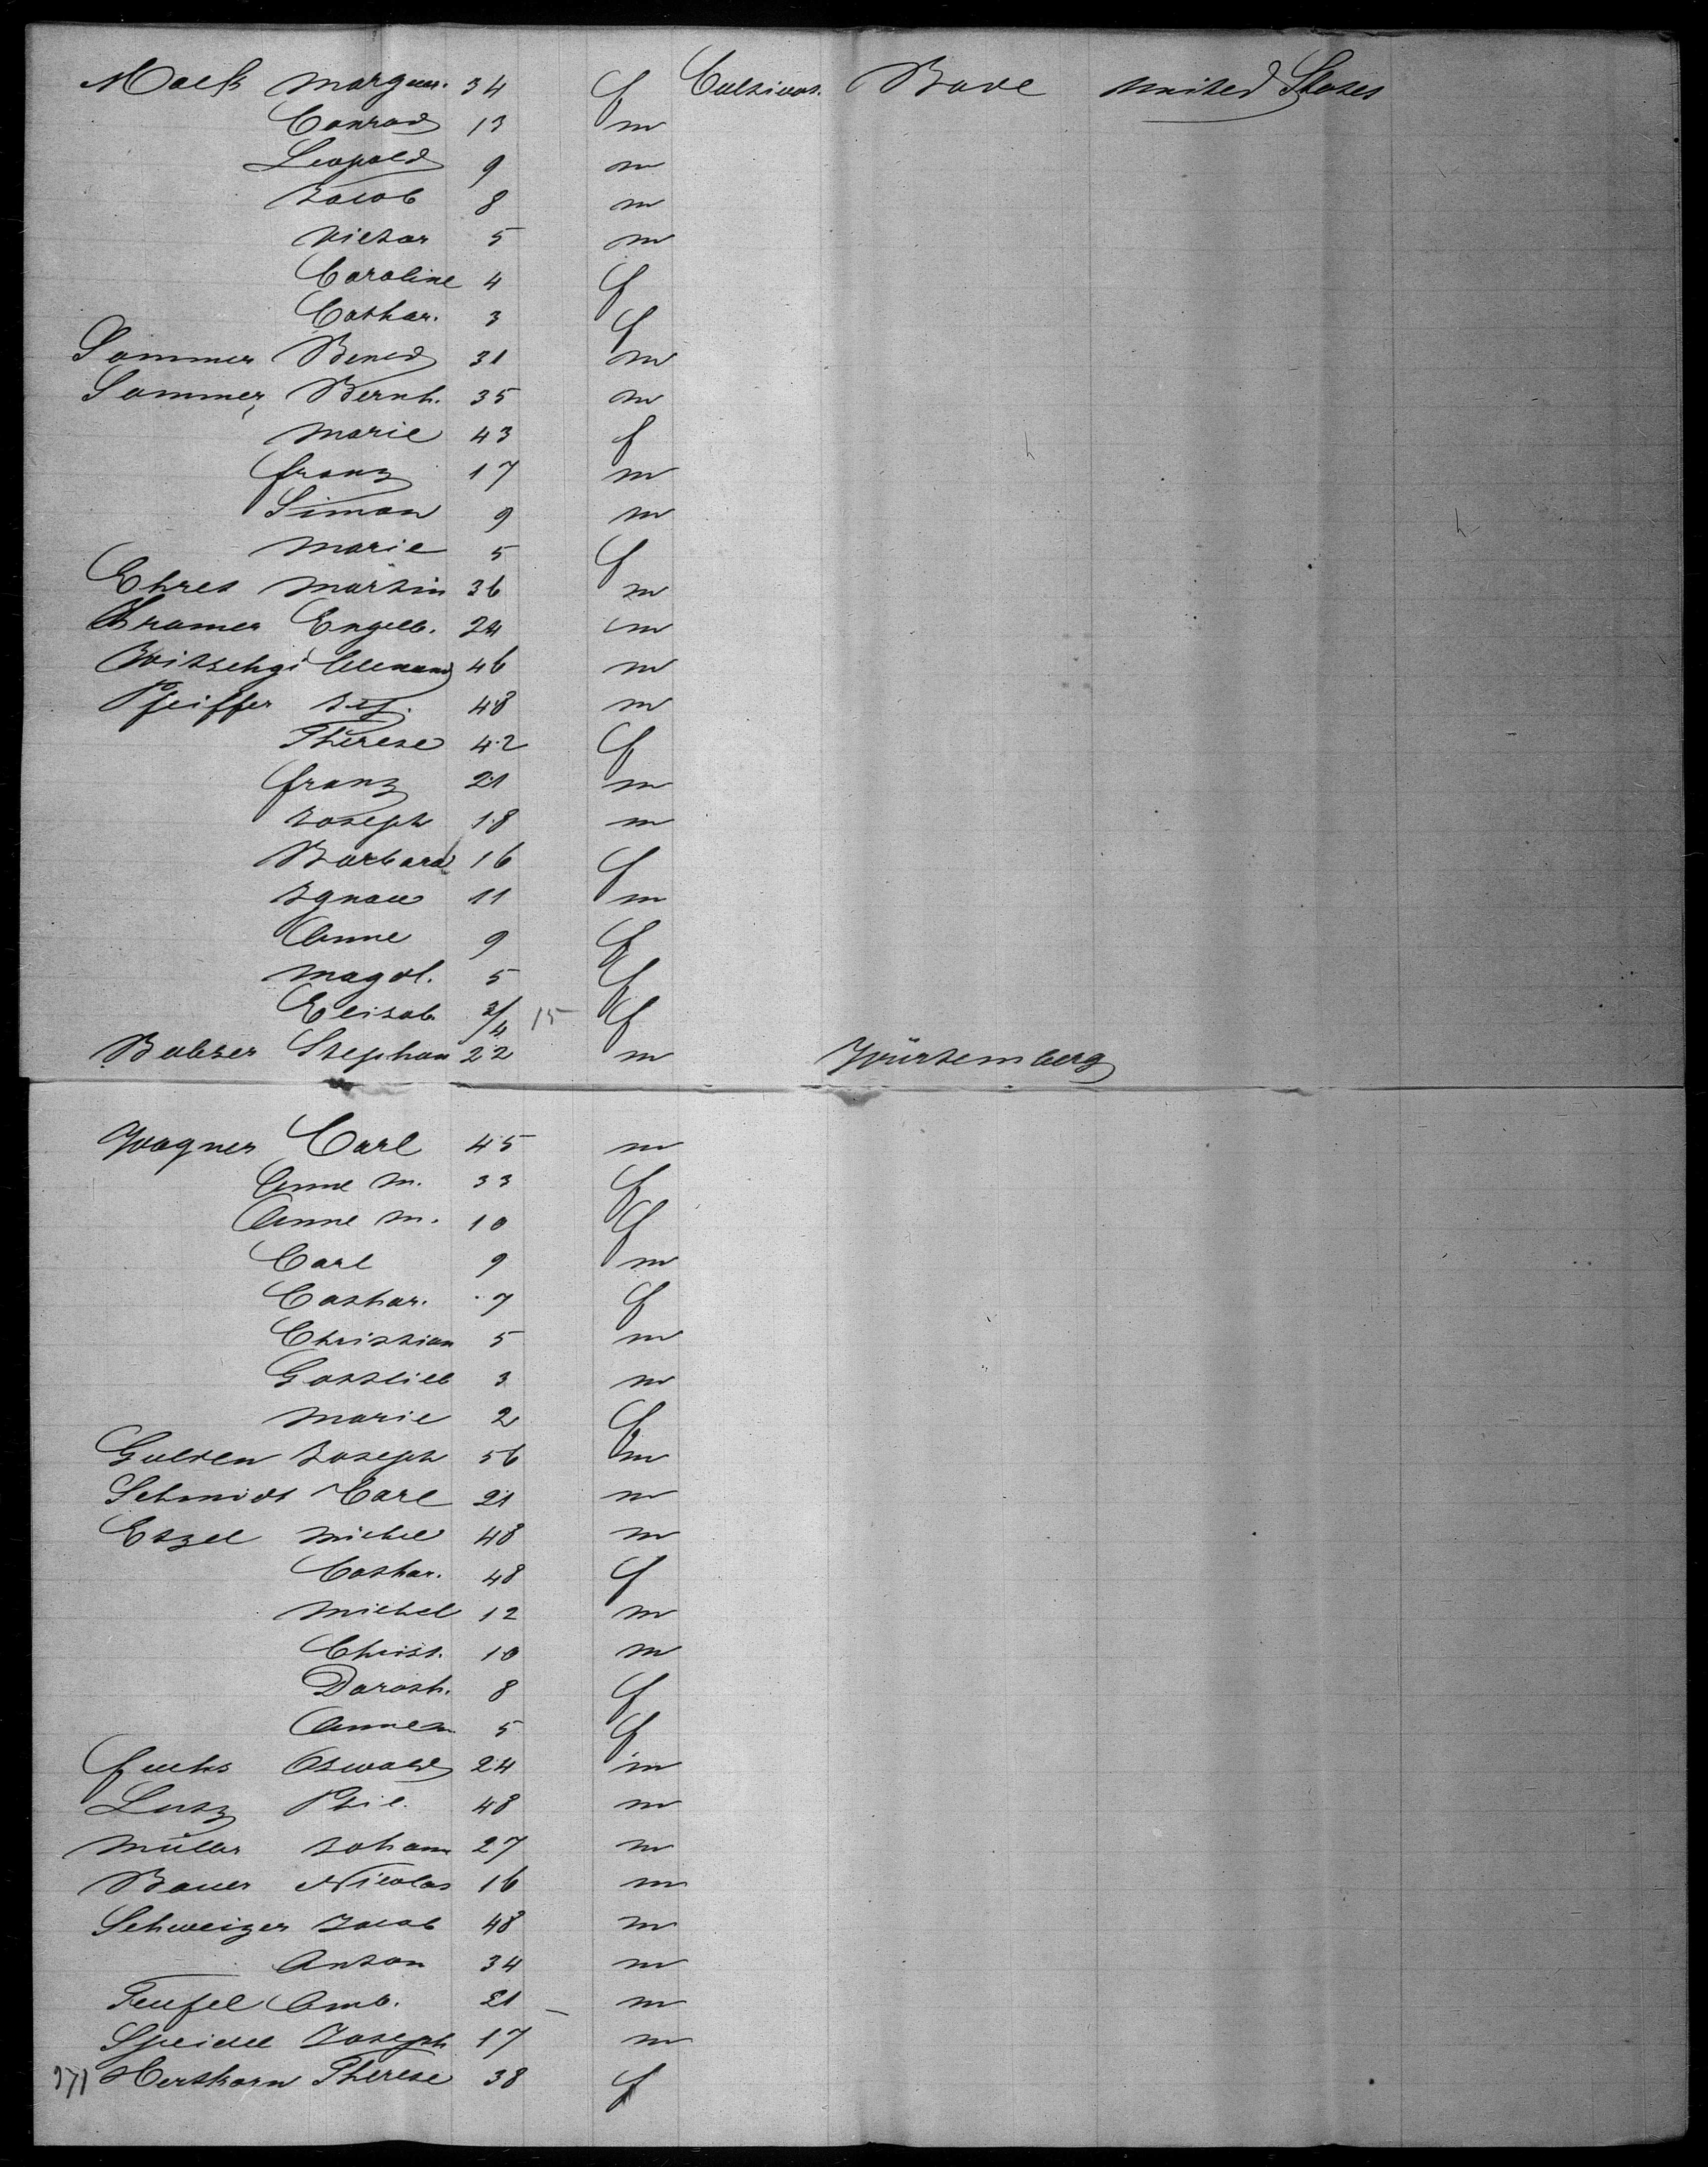 Mock Margar. 34 f Cultivat. Bade United States
Conrad 13 m
Leopold 9 m
Jacob 8 m
Victor 5 m
Caroline 4 f
Cathar. 3 f
Sommer Bened 31 m
Sommer Bernh. 35 m
Marie 43 f
Franz 17 m
Simon 9 m
Marie 5 f
Ehret Martin 36 m
Kramer Engelb. 24 m
46 m
Pfeiffer Jos. 48 m
Therese 42 f
Franz 21 m
Joseph 18 m
Barbara 16 f
Ignace 11 m
Anne 9 f
Magdl. 5 f
Elisab 3/4 15 f
Balzer Stephan 22 m Würtemberg
Wagner Carl 45 m
Anne M. 33 f
Anne M. 10 f
Carl 9 m
Cathar. 7 f
Christian 5 m
Gottlieb 3 m
Marie 2 f
Gulden Joseph 56 m
Schmidt Carl 21 m
Etzel Michel 48 m
Cathar. 48 f
Michel 12 m
Christ. 10 m
Doroth. 8 f
Anne M. 5 f
Fuchs Oswald 24 m
Lutz Phil. 48 m
Müller Johann 27 m
Bauer Nicolas 16 m
Schweizer Jacob 48 m
Anton 34 m
Teufel Amb. 21 m
Speidel Joseph 17 m
171 Herthorn Therese 38 f